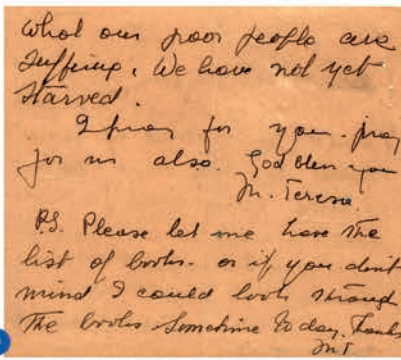 what our poor people are
suffering. We have not yet
starved.
I pray for you - pray
for us also. God bless you
M. Teresa
P.S. Please let me have the
list of books - or if you don't
mind I could look through
the books sometime today. Thanks
MT